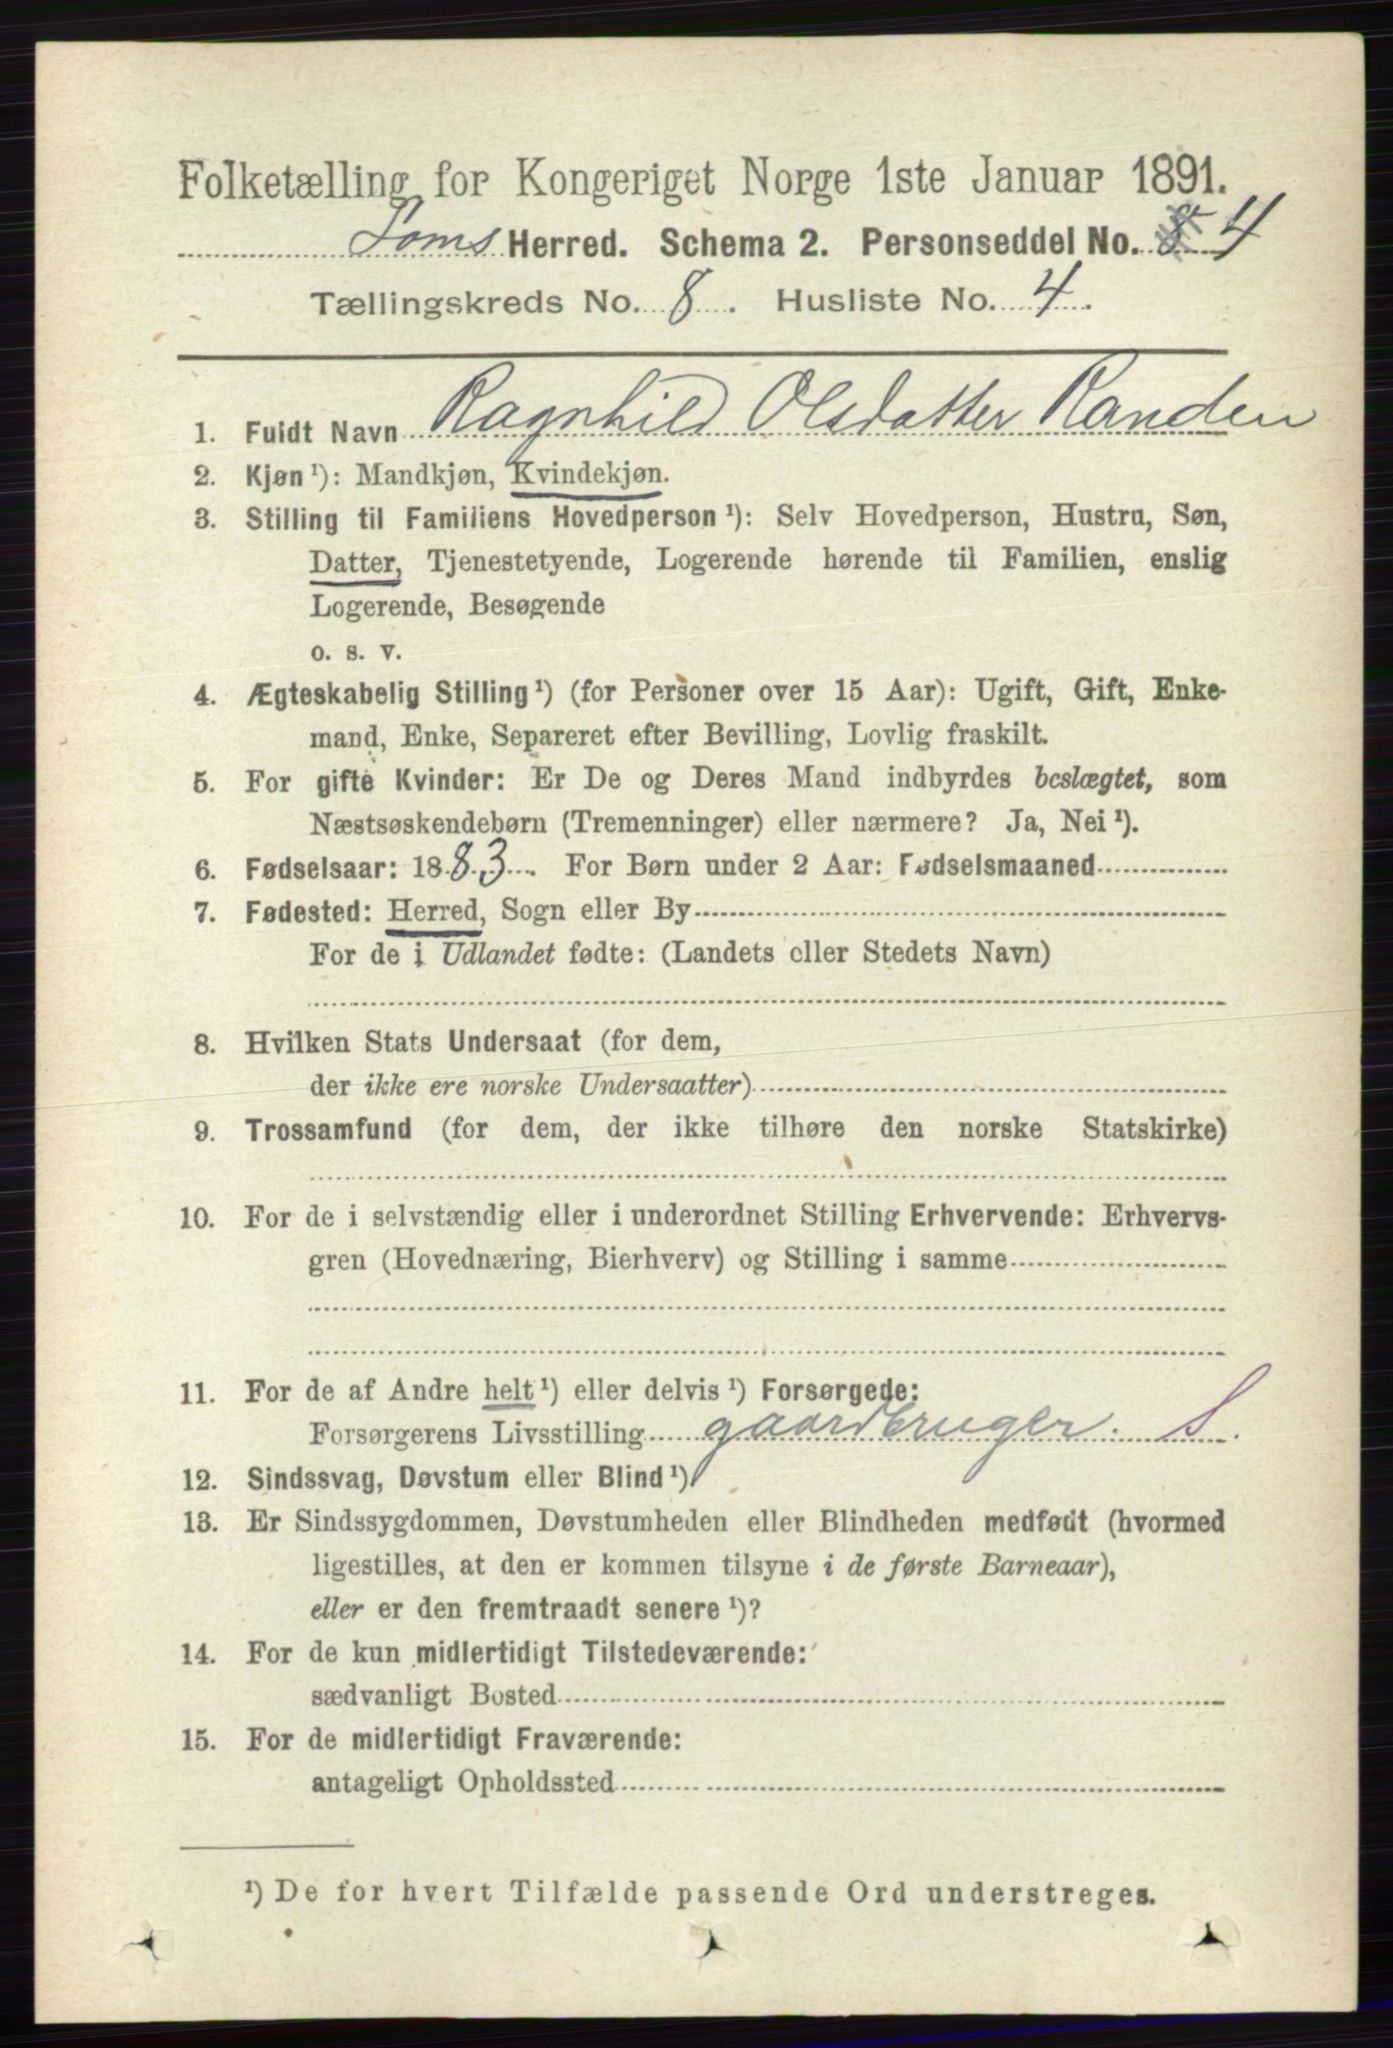 Folketælling for Kongeriget Norge 1ste Januar 1891.
Loms Herred. Schema 2. Personseddel No. 4
Tællingskreds No. 8. Husliste No. 4.
1. Fuldt Navn Ragnhild Olsdatter Randen
2. Kjøn ¹): Mandkjøn, Kvindekjøn.
3. Stilling til Familiens Hovedperson ¹): Selv Hovedperson, Hustru, Søn,
Datter, Tjenestetyende, Logerende hørende til Familien, enslig
Logerende, Besøgende
o. s. v.
4. Ægteskabelig Stilling ¹) (for Personer over 15 Aar): Ugift, Gift, Enke-
mand, Enke, Separeret efter Bevilling, Lovlig fraskilt.
5. For gifte Kvinder: Er De og Deres Mand indbyrdes beslægtet, som
Næstsøskendebørn (Tremenninger) eller nærmere? Ja, Nei ¹).
6. Fødselsaar: 1883. For Børn under 2 Aar: Fødselsmaaned
7. Fødested: Herred, Sogn eller By
For de i Udlandet fødte: (Landets eller Stedets Navn)
8. Hvilken Stats Undersaat (for dem,
der ikke ere norske Undersaatter)
9. Trossamfund (for dem, der ikke tilhøre den norske Statskirke)
10. For de i selvstændig eller i underordnet Stilling Erhvervende: Erhvervs-
gren (Hovednæring, Bierhverv) og Stilling i samme
11. For de af Andre helt ¹) eller delvis ¹) Forsørgede:
Forsørgerens Livsstilling gaardbruger. S.
12. Sindssvag, Døvstum eller Blind ¹)
13. Er Sindssygdommen, Døvstumheden eller Blindheden medfødt (hvormed
ligestilles, at den er kommen tilsyne i de første Barneaar),
eller er den fremtraadt senere ¹)?
14. For de kun midlertidigt Tilstedeværende:
sædvanligt Bosted
15. For de midlertidigt Fraværende:
antageligt Opholdssted
¹) De for hvert Tilfælde passende Ord understreges.